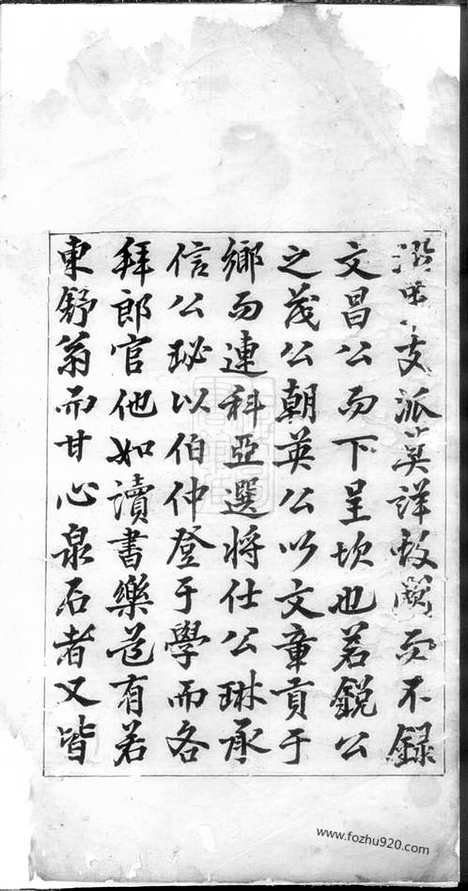 支派莫詳故闕而不録
文昌公而下呈坎也若鋭公
之茂公朝英公以文章貢于
鄉而連科亞選將仕公琳承
信公珌以伯仲登于學而各
拜郎官他如讀書樂道有若
東舒翁而甘心泉石者又皆
www.fozhu920.com